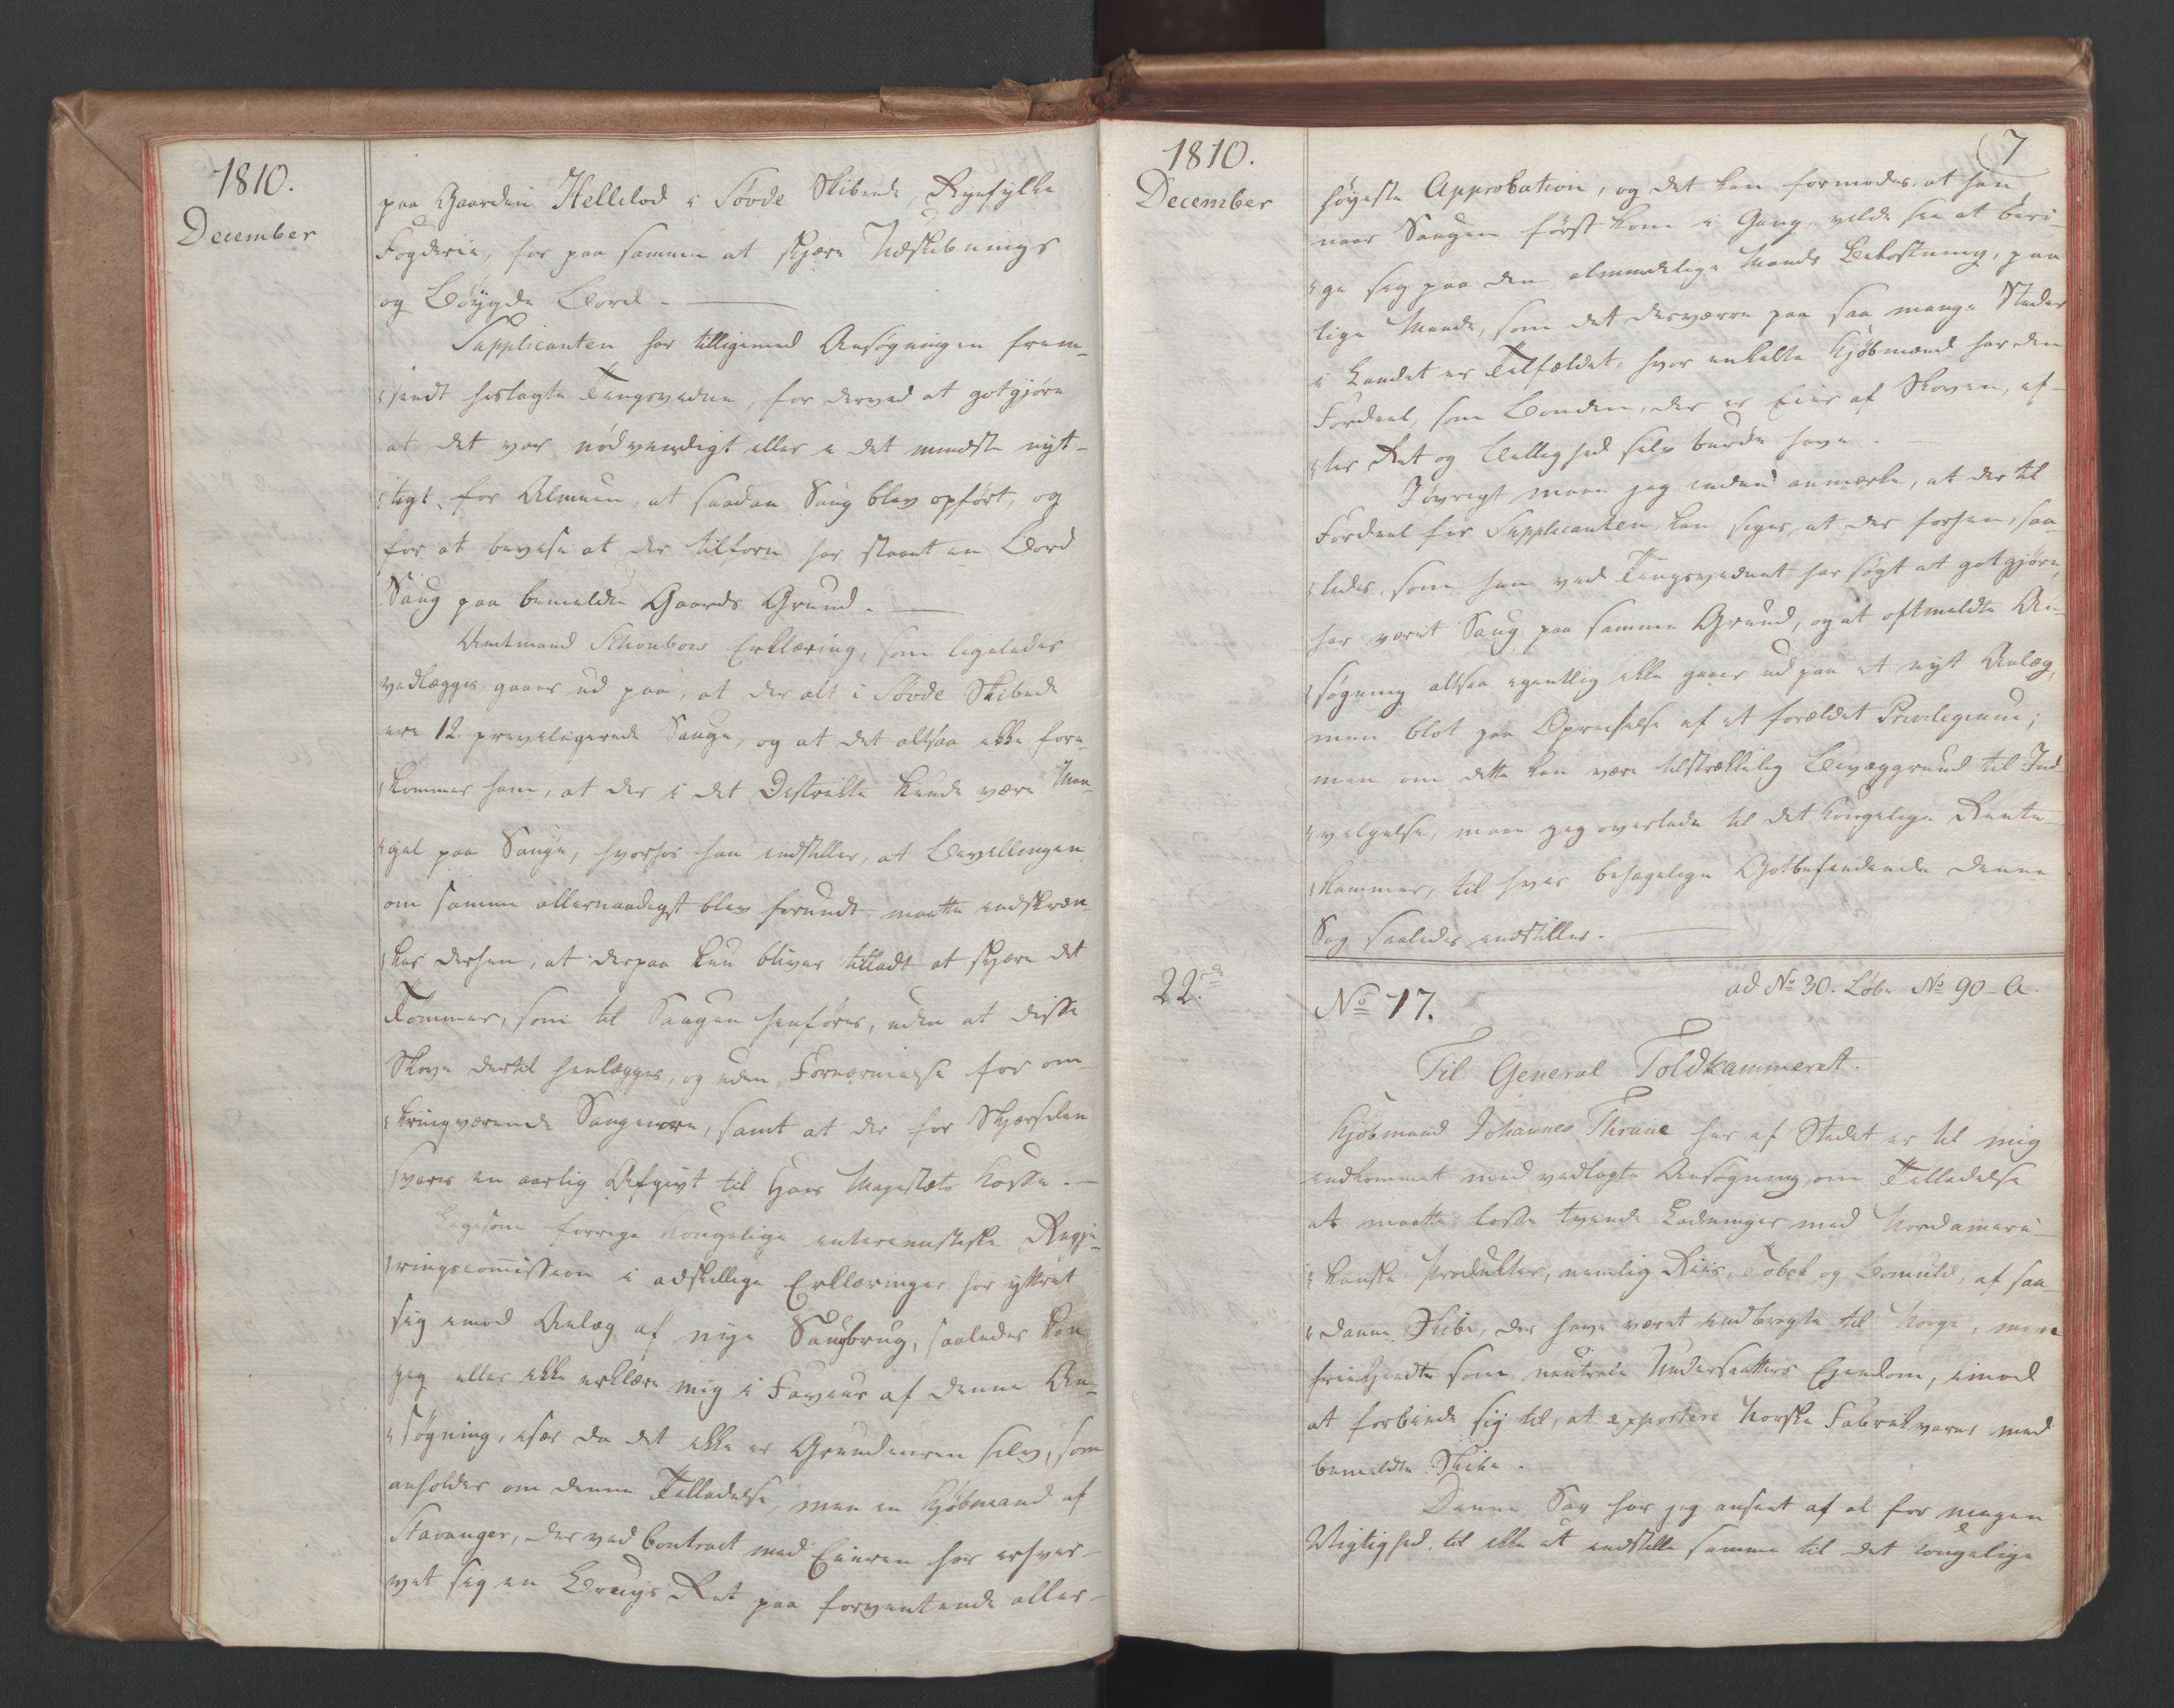 1810.
December
paa Gaarden Hellelod i Søvde Skibrede, Ryefylke
Fogderie, for paa samme at skjære Udskibnings
og Bøygde Bord. —
Supplicanten har tilligemed Ansøgningen frem-
sendt hoslagte Tingsvidne, for derved at gotgjøre
at det var nødvendigt eller i det mindste nyt-
tigt for Almuen, at saadan Saug blev opført, og
for at bevise at der tilforn har staaet en Bord
Saug paa bemeldte Gaards Grund. —
Amtmand Schonbow Erklæring, som ligeledes
vedlægges, gaaer ud paa, at der alt i Søvde Skibrede
ere 12 privilegerede Sauge, og at det altsaa ikke fore-
kommer ham, at der i det Districkte kunde være Man-
gel paa Sauge, hvorhos han indstiller, at Bevillingen,
om samme allernaadigst blev forundt, maatte indskræn-
kes derhen, at derpaa kun bliver tilladt at skjære det
Tømmer, som til Saugen henføres, uden at disse
Skove dertil henlægges, og uden Fornærmelse for om-
kringværende Saugeiere, samt at der for Skjærselen
svares en aarlig Afgivt til Hans Majestæts Kasse. —
Ligesom forrige Kongelige interimistiske Regje-
ringscommission i adskillige Erklæringer har yttret
sig imod Anlæg af nye Saugbrug, saaledes kan
jeg eller ikke erklære mig i Faveur af denne An-
søgning, især da det ikke er Grundeieren selv, som
anholder om denne Tilladelse, men en Kjøbmand af
Stavanger, der ved Contract med Eieren har erhver-
vet sig en Brugs Ret paa forventende aller-
1810.
December
7
høyeste Approbation, og det kan formodes, at han
naar Saugen først kom i Gang vilde see at beri-
ge sig paa den almindelige Mands Bekostning, paa
lige Maade, som det desværre paa saa mange Steder
i Landet er Tilfældet, hvor enkelte Kjøbmænd har den
Fordeel, som Bonden, der er Eier af Skoven, ef-
ter Ret og Billighed selv burde have. —
Iøvrigt maae jeg endnu anmærke, at der til
Fordeel for Supplicanten kan siges, at der forhen, saa-
ledes, som han ved Tingsvidnet har søgt at gotgjøre,
har været Saug paa samme Grund, og at oftmeldte An-
søgning altsaa egentlig ikke gaaer ud paa et nyt Anlæg,
men blot paa Opreiselse af et forældet Privilegium;
men om dette kan være tilstrækkelig Bevæggrund til Ind-
vilgelse, maae jeg overlade til det Kongelige Rente-
kammer, til hvis behagelige Gotbefindende denne
Sag saaledes indstilles. —
22de
No 17.
ad No 30. Løbe No 90-A.
Til General Toldkammeret.
Kjøbmand Johannes Thrane her af Stedet er til mig
indkommet med vedlagte Ansøgning om Tilladelse
at maatte losse tvende Ladninger med Nordameri-
kanske Produkter, nemlig Riis, Tobak og Bomuld, af saa-
danne Skibe, der have været indbragte til Norge, men
frikjendte som neutrale Undersaatters Ejendom, imod
at forbinde sig til, at exportere Norske Fabrikvarer med
bemeldte Skibe.
Denne Sag har jeg anseet af al for megen
Vigtighed, til ikke at indstille samme til det Kongelige